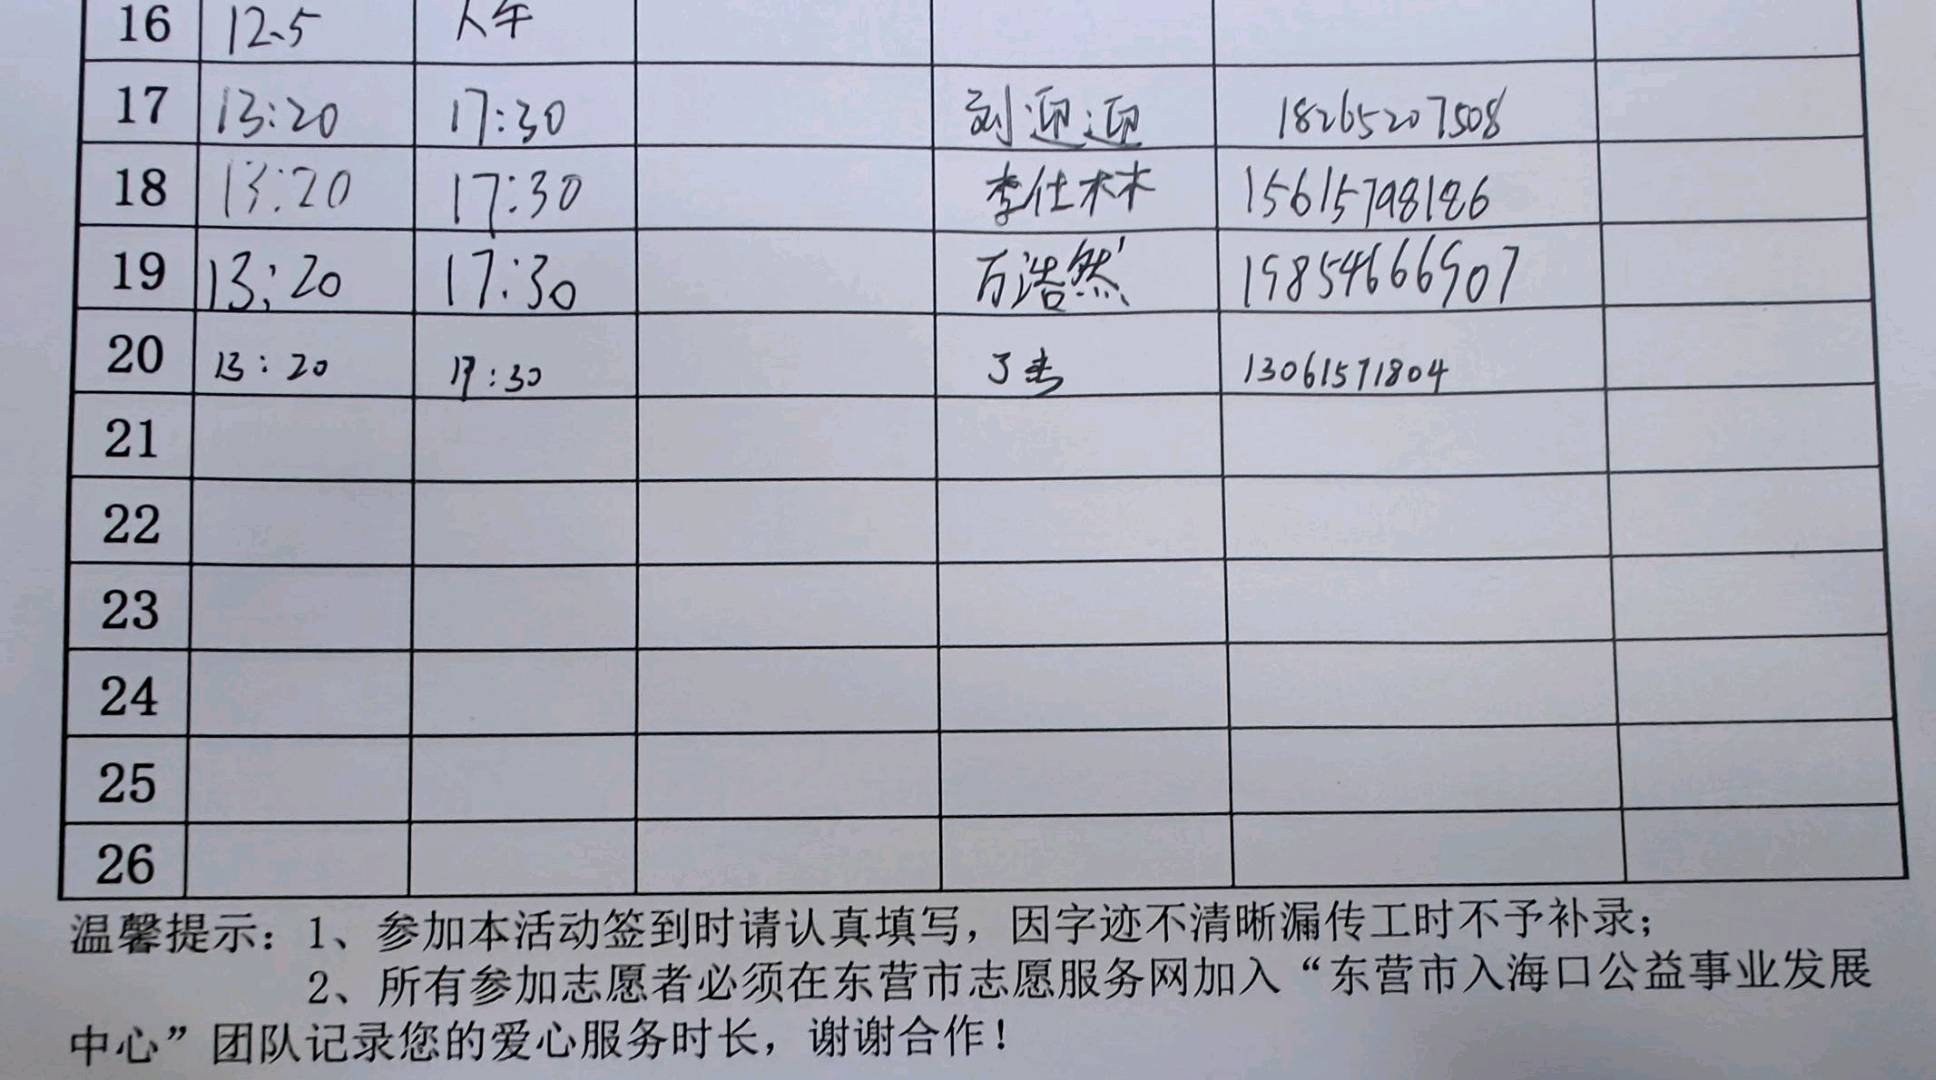 16 12.5 下午
17 13:20 17:30 刘迎迎 18265207508
18 13:20 17:30 李仕林 15615798186
19 13:20 17:30 万浩然 19854666907
20 13:20 17:30 13061571804
21
22
23
24
25
26
温馨提示：1、参加本活动签到时请认真填写，因字迹不清晰漏传工时不予补录；
2、所有参加志愿者必须在东营市志愿服务网加入“东营市入海口公益事业发展
中心”团队记录您的爱心服务时长，谢谢合作！